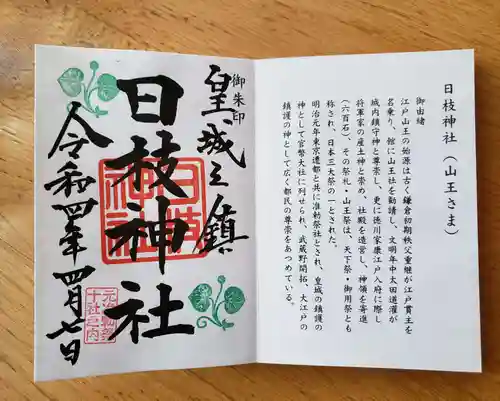 日枝神社(山王さま)
御由緒
江戸山王の始源は古く鎌倉初期秩父重継が江戸貫主を
名乗り、館に山王社を勧請し、文明年中太田道灌が
城内鎮守神と尊崇し、更に徳川家康江戸入府に際し
将軍家の産土神と崇め、社殿を造営し、神領を寄進
(六百石)、その祭礼・山王祭は、天下祭・御用祭とも
称され、日本三大祭の一とされた。
明治元年東京遷都と共に准勅祭社とされ、皇城の鎮護の
神として官幣大社に列せられ、武蔵野開拓、大江戸の
鎮護の神として広く都民の尊崇をあつめている。
御朱印
皇城之鎮
日枝神社
日枝神社
令和四年四月七日
元准勅祭
十社之内